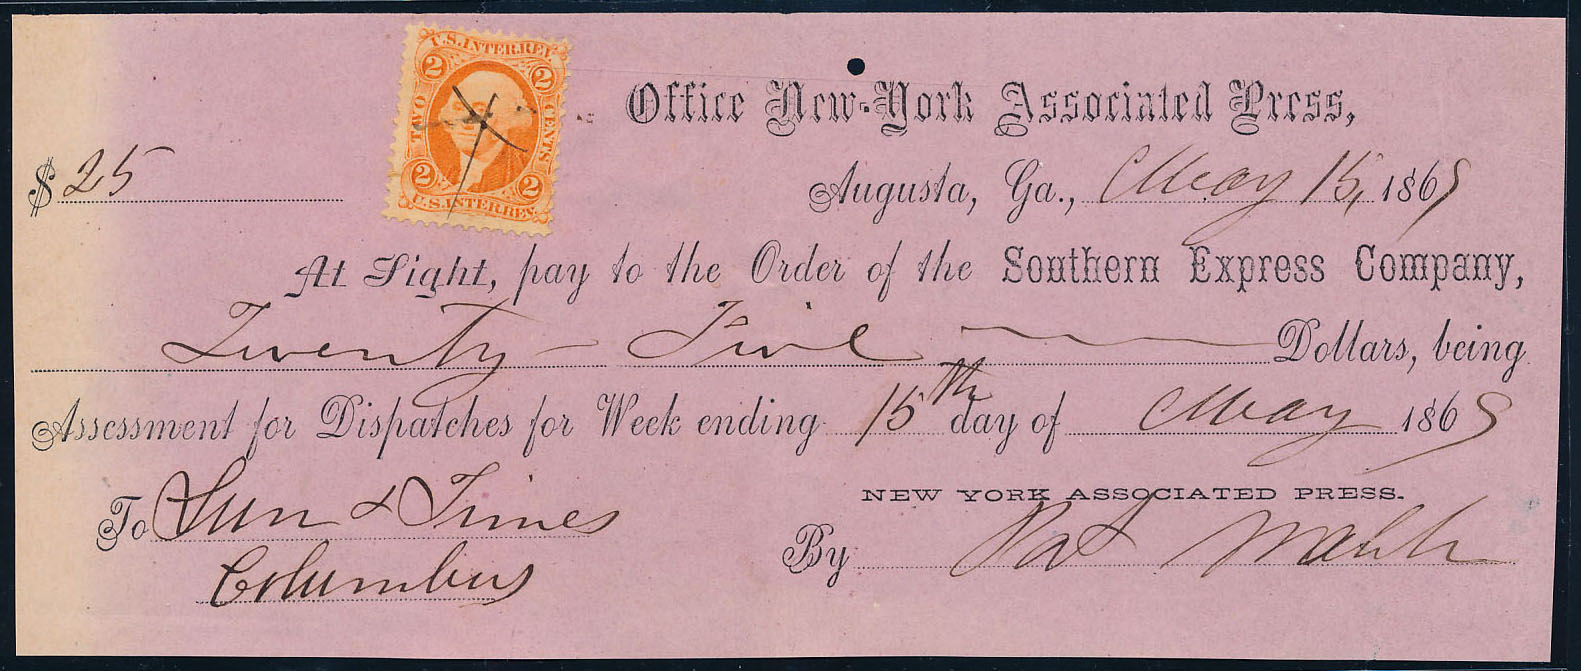 U.S. INTER. REV.
2 2
TWO CENTS
2 2
U.S. INTER. REV.
Office New-York Associated Press,
$ 25
Augusta, Ga., May 15, 1869
At Sight, pay to the Order of the Southern Express Company,
Twenty-Five Dollars, being
Assessment for Dispatches for Week ending 15th day of May 1869
To Sun & Times
Columbus
NEW YORK ASSOCIATED PRESS.
By Pat Walsh